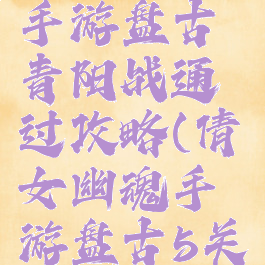 手游盘古
青阳战通
过攻略(倩
女幽魂手
游盘古5关